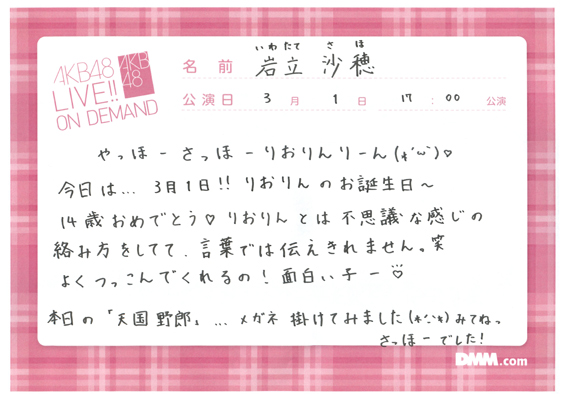 AKB48
LIVE!!
ON DEMAND
AKB
48
いわたて さほ
名前 岩立 沙穂
公演日 3月 1日 17:00 公演
やっほーさっほーりおりんりーん(*'ω'*)♡
今日は... 3月1日!! りおりんのお誕生日〜
14歳おめでとう♡りおりんとは不思議な感じの
絡み方をしてて、言葉では伝えきれません。笑
よくつっこんでくれるの!面白い子ー♡
本日の「天国野郎」... メガネ掛けてみました(*^^*)みてねっ
さっほーでした!
DMM.com